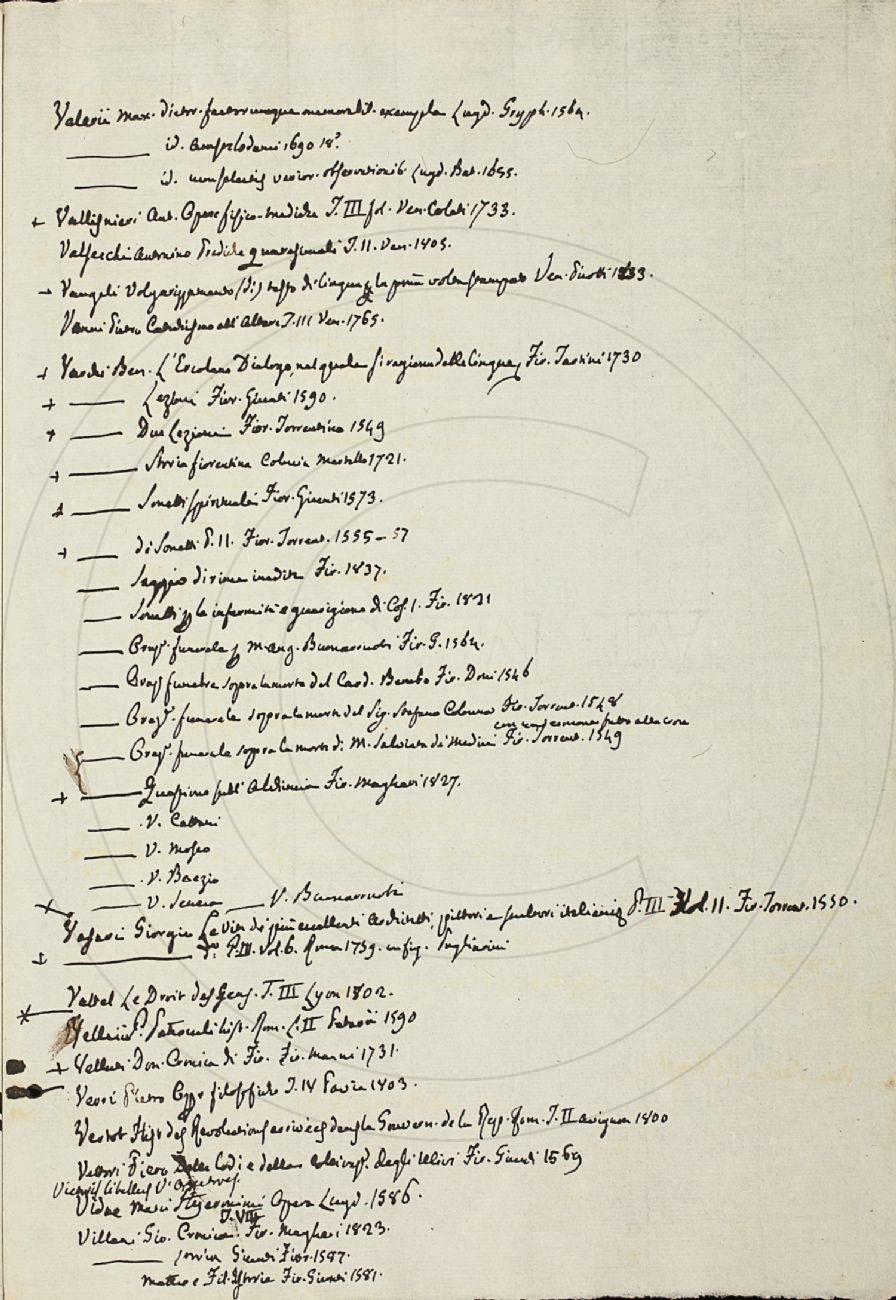 Valerii Max. dictor. factorumque memorabil. exempla Lugd. Gryph. 1564.
—— id. Amstelodami 1690 18º
—— id. cum selectis varior. observationib. Lugd. Bat. 1655.
+ Vallisnieri Ant. Opere fisico-mediche T. III fol. Ven. Coleti 1733.
Valsecchi Antonino Prediche quaresimali T. II. Ven. 1805.
- Vangeli Volgarizzamento (di) testo di lingua p la prima volta stampato Ven. 1833.
Vanni Pietro Catechismo all' Altare T. III Ven. 1765.
+ Varchi Ben. L'Ercolano Dialogo, nel quale si ragiona delle lingue, Fir. Tartini 1730
+ —— Lezioni Fior. Giunti 1590.
+ —— Due Lezioni Fior. Torrentino 1549
+ —— Storia fiorentina Colonia Martello 1721.
+ —— Sonetti spirituali Fior. Giunti 1573.
+ —— di Sonetti P. II. Fior. Torrent. 1555-57
—— Saggio di rime inedite Fir. 1837.
—— Sonetti p la infermità e guarigione di Cos. I. Fir. 1821
—— Oraz. funerale p M. Ang. Buonarroti Fir. G. 1564.
—— Oraz. funebre sopra la morte del Card. Bembo Fir. Doni 1546
—— Oraz. funerale sopra la morte del Sig. Stefano Colonna Fir. Torrent. 1548
—— Oraz. funerale sopra la morte di M. Salviata de Medici Fir. Torrent. 1549 con un sermone fatto alla croce
+ —— Questione sull' Alchimia Fir. Magheri 1827.
—— V. Cattani
—— V. Mosco
—— V. Boezio
—— V. Seneca —— V. Buonarroti
Vasari Giorgio Le Vite de' più eccellenti Architetti, pittori e scultori italiani P. III Vol. II. Fir. Torrent. 1550.
+ —— P. III. Vol. 6. Roma 1759. con fig. Pagliarini
Vattel Le Droit des Gens. T. III Lyon 1802.
Velleii P. Paterculi hist. Rom. L. II 1590
+ Velluti Don. Cronica di Fir. Fir. Manni 1731.
Verri Pietro Opp. filosofiche T. IV Pavia 1803.
Vertot Hist. des Revolutions arrivées dans le Gouvern. de la Rep. Rom. T. II Avignon 1800
Vettori Piero Delle Lodi e della coltivaz. degli Ulivi Fir. Giunti 1569
Victoris libellus V.
Vidae Marci Hieronimi Opera Lugd. 1586.
Villani Gio. Cronica T. VIII Fir. Magheri 1823.
—— Storia Giunti Fior. 1587.
Matteo e Fil. Istoria Fir. Giunti 1581.